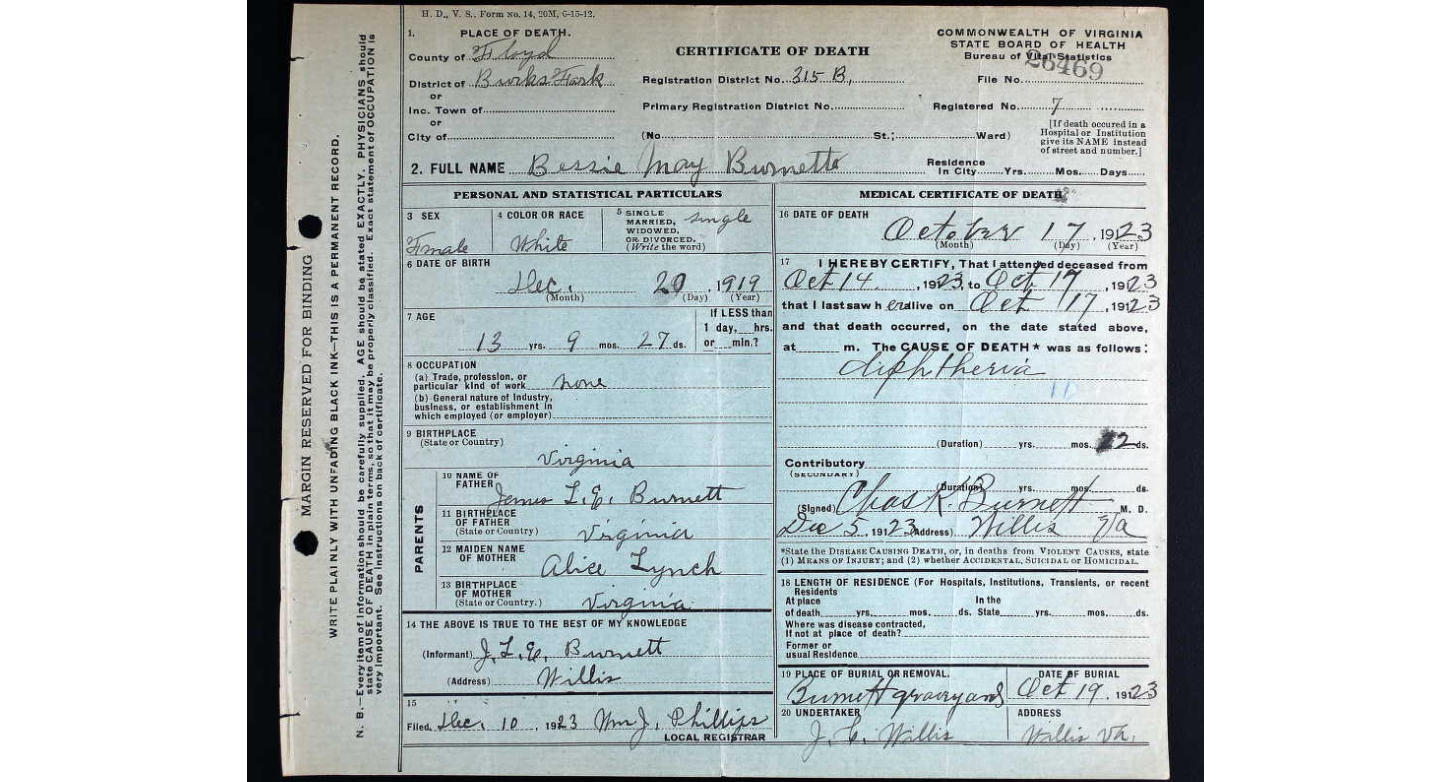 H. D., V. S., Form No. 14, 20M, 6-15-12.
1. PLACE OF DEATH.
County of Floyd
District of Burks Fork
or
Inc. Town of
or
City of
CERTIFICATE OF DEATH
Registration District No. 315 B,
Primary Registration District No.
(No. St.; Ward)
COMMONWEALTH OF VIRGINIA
STATE BOARD OF HEALTH
Bureau of Vital Statistics
File No. 26469
Registered No. 7
[If death occured in a
Hospital or Institution
give its NAME instead
of street and number.]
2. FULL NAME Bessie May Burnette
Residence
In City Yrs. Mos. Days
PERSONAL AND STATISTICAL PARTICULARS
3 SEX
Fmale
4 COLOR OR RACE
White
5 SINGLE
MARRIED,
WIDOWED,
OR DIVORCED.
(Write the word)
single
6 DATE OF BIRTH
Dec. 20, 1919
(Month) (Day) (Year)
7 AGE
13 yrs. 9 mos. 27 ds.
If LESS than
1 day, hrs.
or min.?
8 OCCUPATION
(a) Trade, profession, or
particular kind of work none
(b) General nature of Industry,
business, or establishment in
which employed (or employer)
9 BIRTHPLACE
(State or Country)
Virginia
PARENTS
10 NAME OF
FATHER
James L. E. Burnett
11 BIRTHPLACE
OF FATHER
(State or Country)
Virginia
12 MAIDEN NAME
OF MOTHER
Alice Lynch
13 BIRTHPLACE
OF MOTHER
(State or Country.)
Virginia
14 THE ABOVE IS TRUE TO THE BEST OF MY KNOWLEDGE
(Informant) J. L. E. Burnett
(Address) Willis
15
Filed, Dec. 10, 1923 Wm J. Phillips
LOCAL REGISTRAR
MEDICAL CERTIFICATE OF DEATH
16 DATE OF DEATH
October 17, 1923
(Month) (Day) (Year)
17 I HEREBY CERTIFY, That I attended deceased from
Oct 14, 1923, to Oct 17, 1923
that I last saw her alive on Oct 17, 1923
and that death occurred, on the date stated above,
at m. The CAUSE OF DEATH* was as follows:
diphtheria
11
(Duration) yrs. mos. 2 ds.
Contributory
(SECONDARY)
(Duration) yrs. mos. ds.
(Signed) Chas K. Burnett M. D.
Dec 5, 1923 (Address) Willis Va
*State the DISEASE CAUSING DEATH, or, in deaths from VIOLENT CAUSES, state
(1) MEANS OF INJURY; and (2) whether ACCIDENTAL, SUICIDAL or HOMICIDAL.
18 LENGTH OF RESIDENCE (For Hospitals, Institutions, Transients, or recent
Residents
At place In the
of death yrs. mos. ds. State yrs. mos. ds.
Where was disease contracted,
If not at place of death?
Former or
usual Residence
19 PLACE OF BURIAL OR REMOVAL.
Burnett graveyard
DATE OF BURIAL
Oct 19, 1923
20 UNDERTAKER
J. C. Willis
ADDRESS
Willis Va.
MARGIN RESERVED FOR BINDING
WRITE PLAINLY WITH UNFADING BLACK INK—THIS IS A PERMANENT RECORD.
N. B.—Every item of information should be carefully supplied. AGE should be stated EXACTLY. PHYSICIANS should
state CAUSE OF DEATH in plain terms, so that it may be properly classified. Exact statement of OCCUPATION is
very important. See instructions on back of certificate.